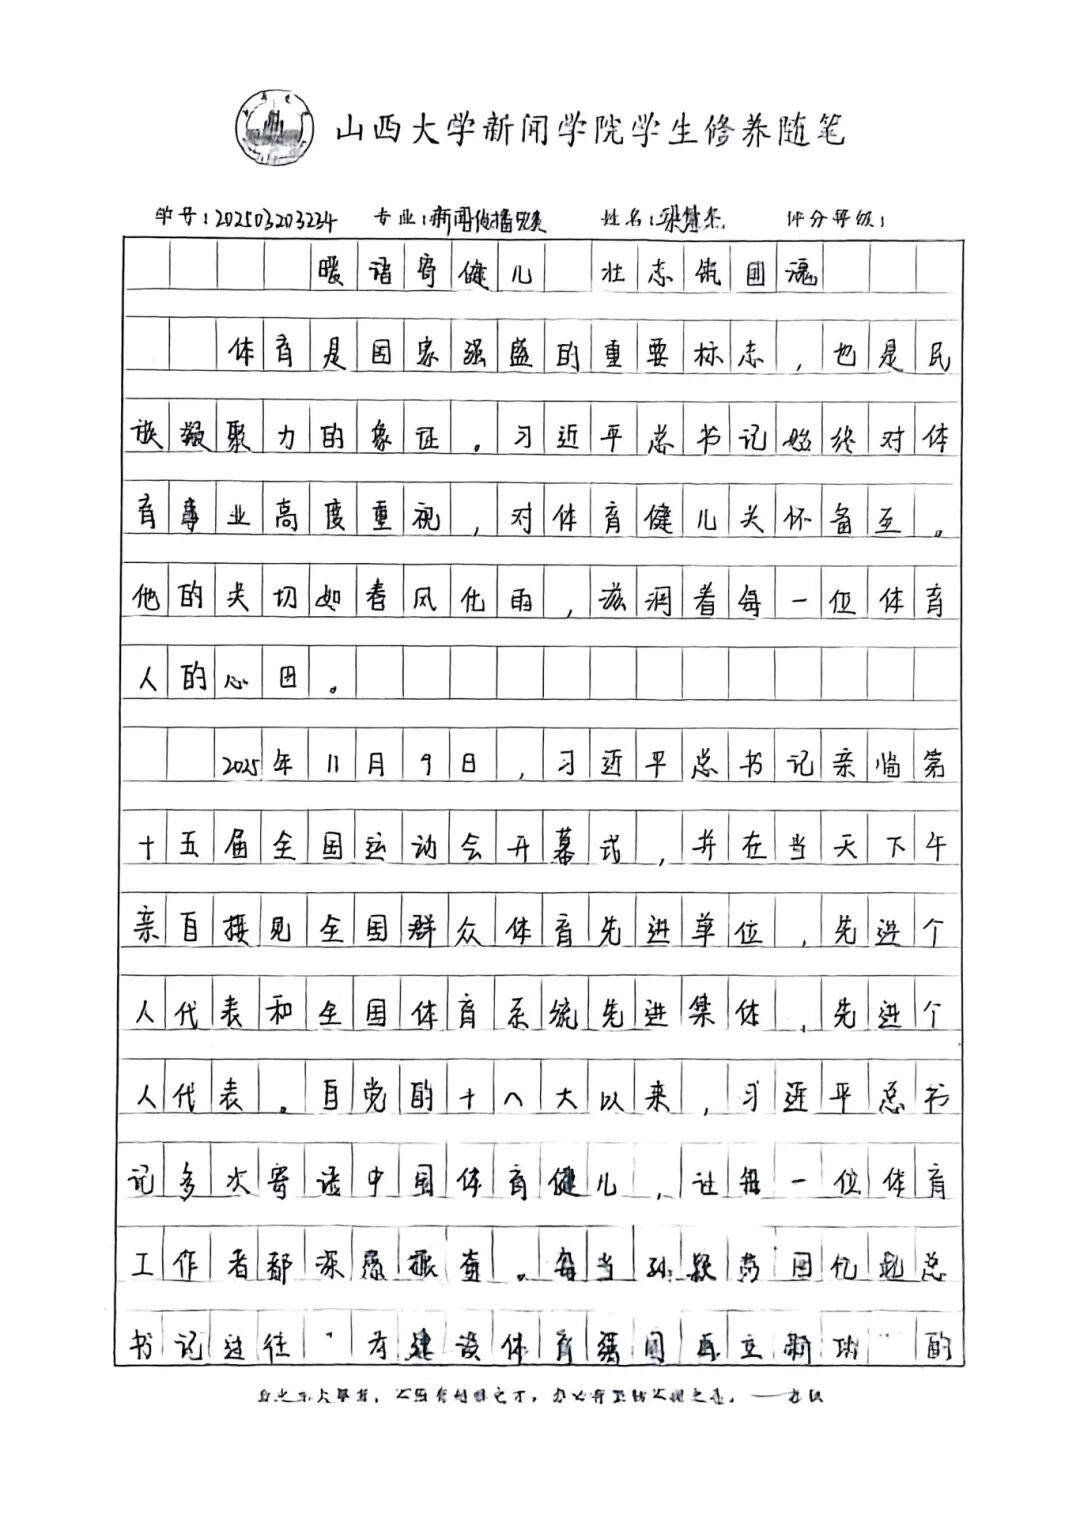 山西大学新闻学院学生修养随笔
学号：202503203234 专业：新闻传播 姓名：梁慧 评分等级：
暖语寄健儿 壮志筑国魂
体育是国家强盛的重要标志，也是民
族凝聚力的象征。习近平总书记始终对体
育事业高度重视，对体育健儿关怀备至。
他的关切如春风化雨，滋润着每一位体育
人的心田。
2025年11月9日，习近平总书记亲临第
十五届全国运动会开幕式，并在当天下午
亲自接见全国群众体育先进单位、先进个
人代表和全国体育系统先进集体、先进个
人代表。自党的十八大以来，习近平总书
记多次寄语中国体育健儿，让每一位体育
工作者都深感振奋。每当孙颖莎回忆起总
书记过往“为建设体育强国再立新功”的